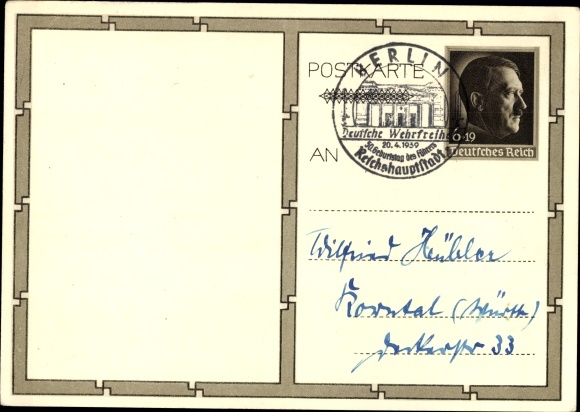 POSTKARTE
BERLIN
Deutsche Wehrfreiheit
20.4.1939
50. Geburtstag des Führers
Reichshauptstadt
6+19
Deutsches Reich
AN
Wilfried Hübler
Korntal (Württ.)
33